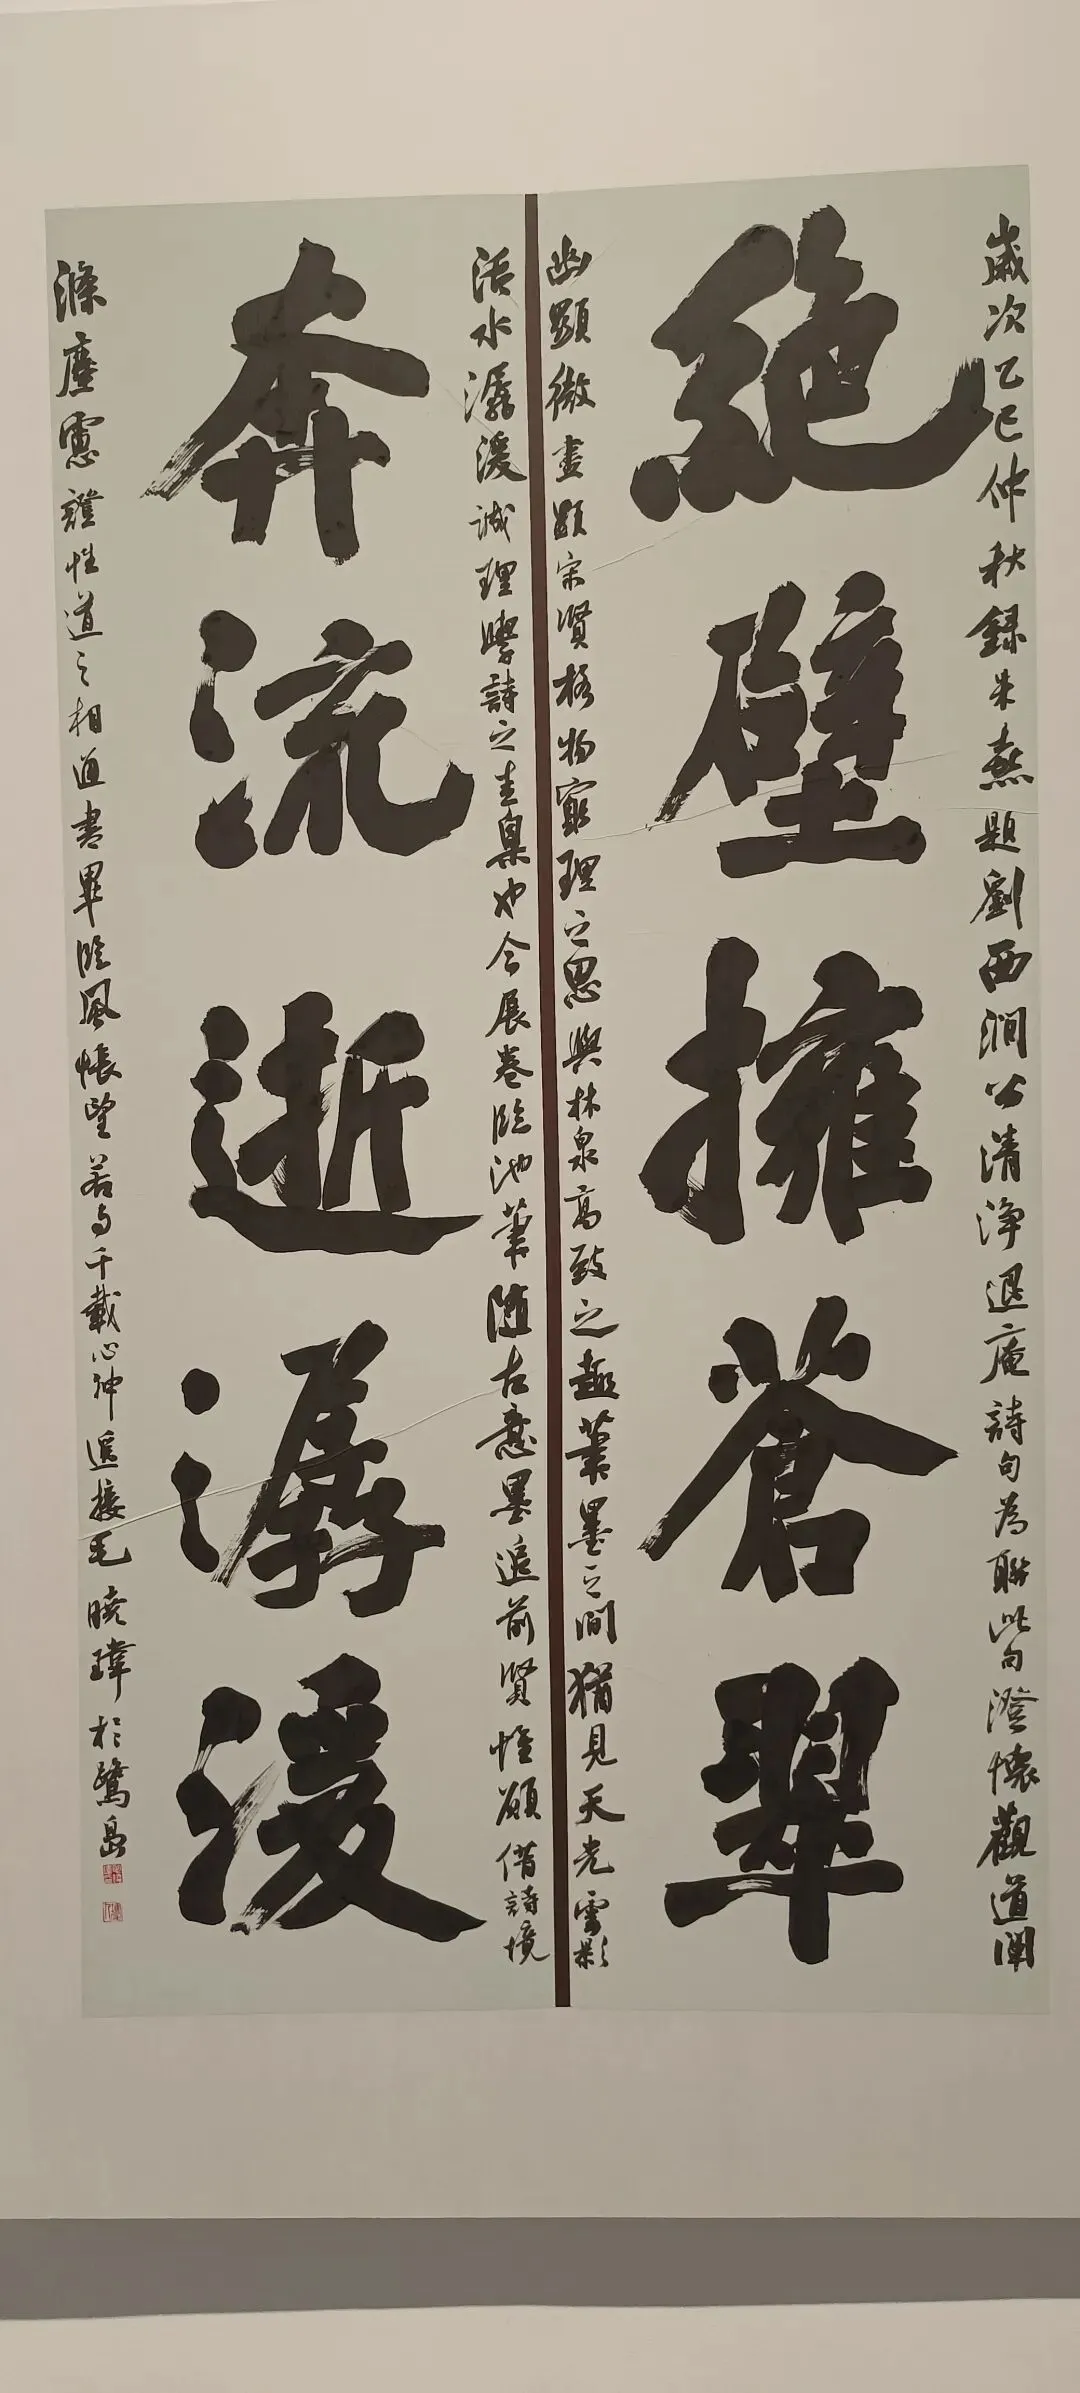 歲次乙巳仲秋錄朱熹題劉西澗公清淨退庵詩句為聯此句澄懷觀道闡
絕壁擁蒼翠
幽顯微盡顯宋賢格物窮理之思與林泉高致之趣筆墨之間猶見天光雲影
活水潺湲誠理學詩之圭臬也今展卷臨池筆隨古意墨追前賢惟願借詩境
奔流逝潺湲
滌塵慮證性道之相通書畢臨風悵望若与千載心神遥接毛曉瑋於鷺島